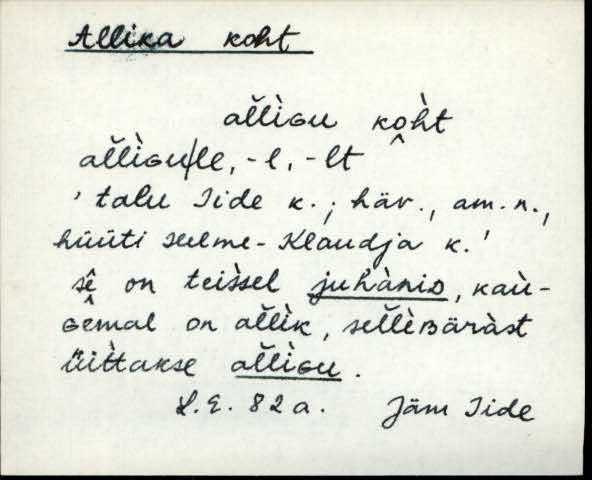 Allika koht
al̆l̆ìɢu ko̭h̀t
al̆l̆ìɢu|le, -l, -lt
' talu Iide k.; häv., am. n.,
hüüti seelme-Klaudja k.'
sê on teìssel juh̀ànid, kaù-
ɢêmal on al̆l̆ìk, sel̆l̆èʙäràst
üìt̀takse al̆l̆ìɢu.
L.E. 82a. Jäm Iide